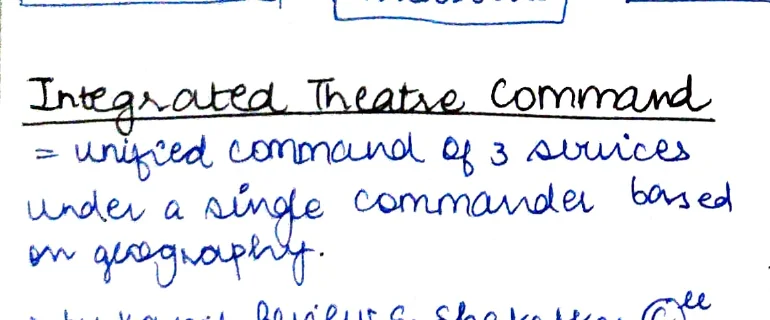 Integrated Theatre Command
= unified command of 3 services
under a single commander based
on geography.
Review & Shekatkar